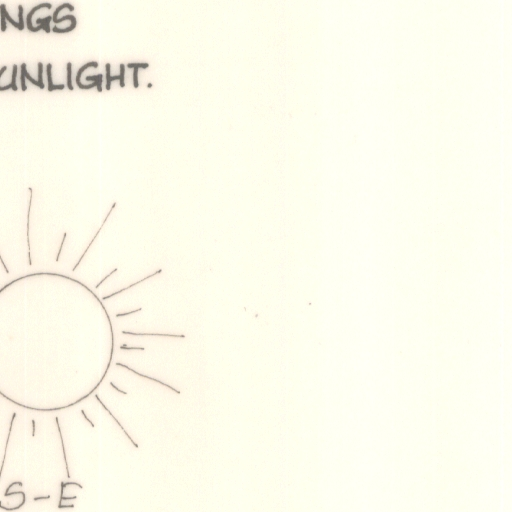 NGS
UNLIGHT.
S-E